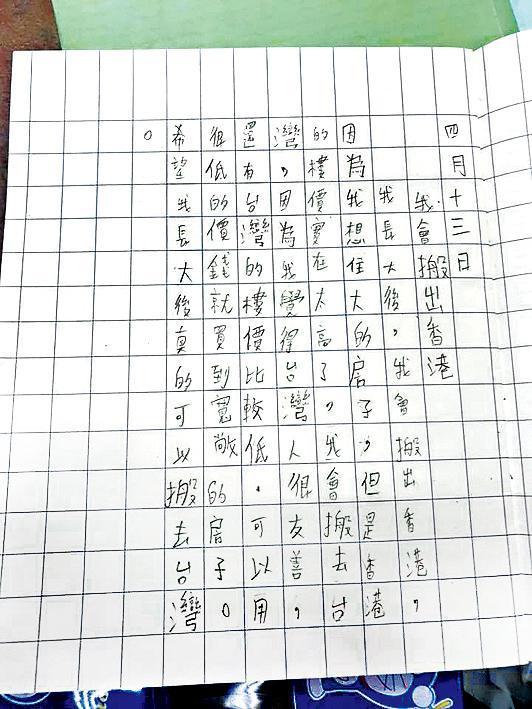 四月十三日
我會搬出香港
我長大後，我會搬出香港，
因為我想住大的房子，但是香港
的樓價實在太高了，我會搬去台
灣，因為我覺得台灣人很友善，
還有台灣的樓價比較低，可以用
很低的價錢就買到寬敞的房子。
希望我長大後真的可以搬去台灣
。